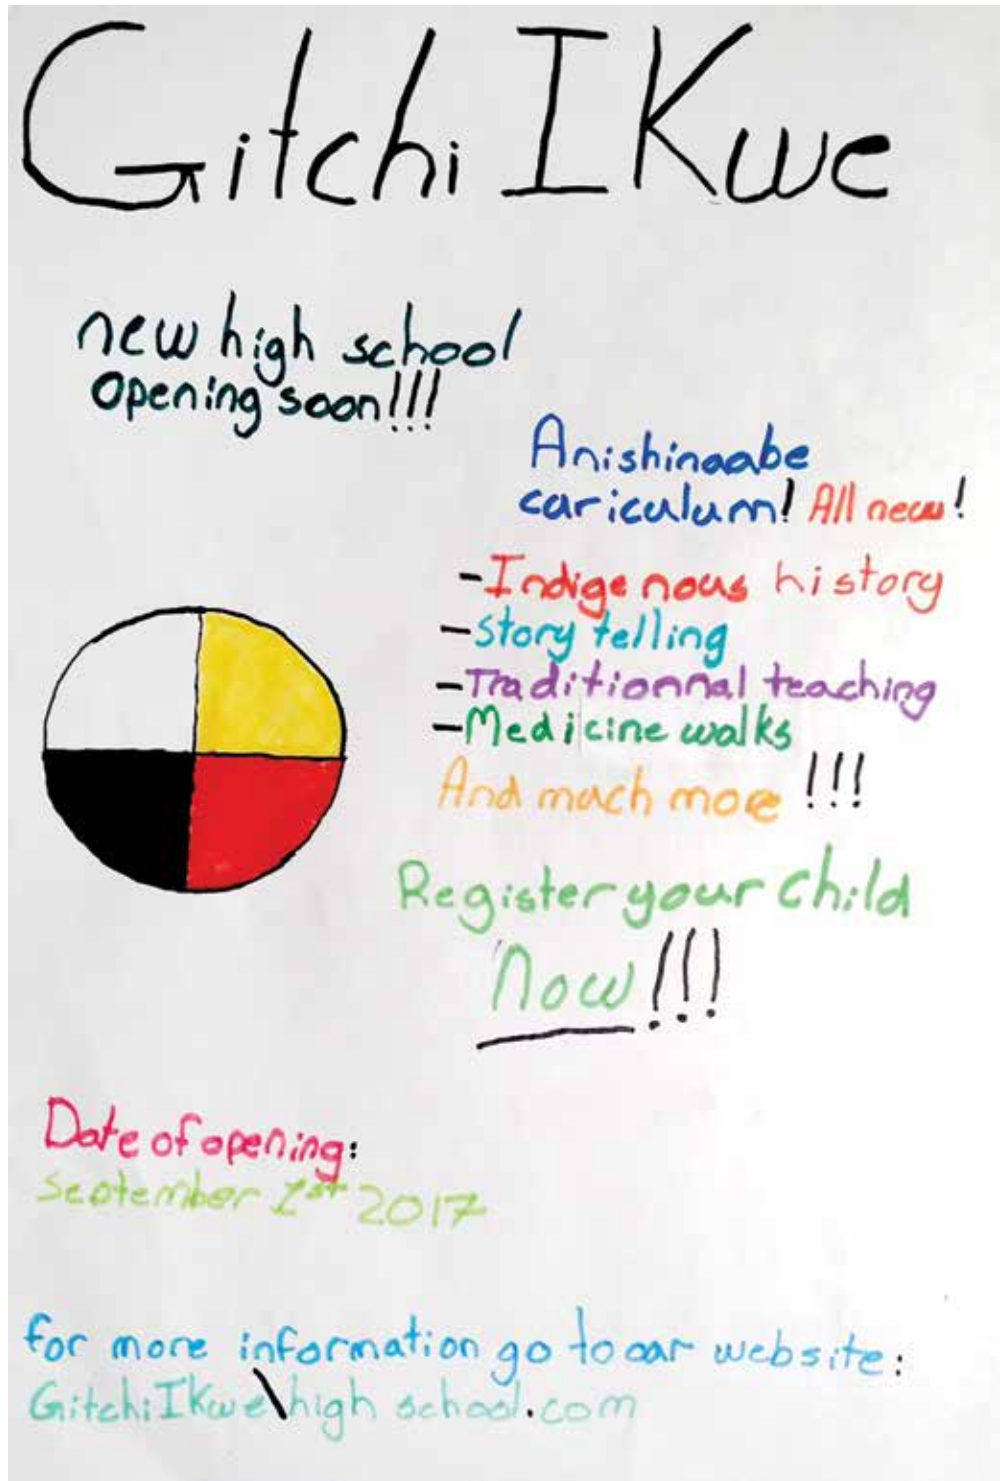 Gitchi IKwe
new high school
opening soon!!!
Anishinaabe
cariculum! All new!
-Indigenous history
-Story telling
-Traditionnal teaching
-Medicine walks
And much more !!!
Register your child
Now!!!
Date of opening:
September 1st 2017
for more information go to our website:
GitchiIKwe\high school.com